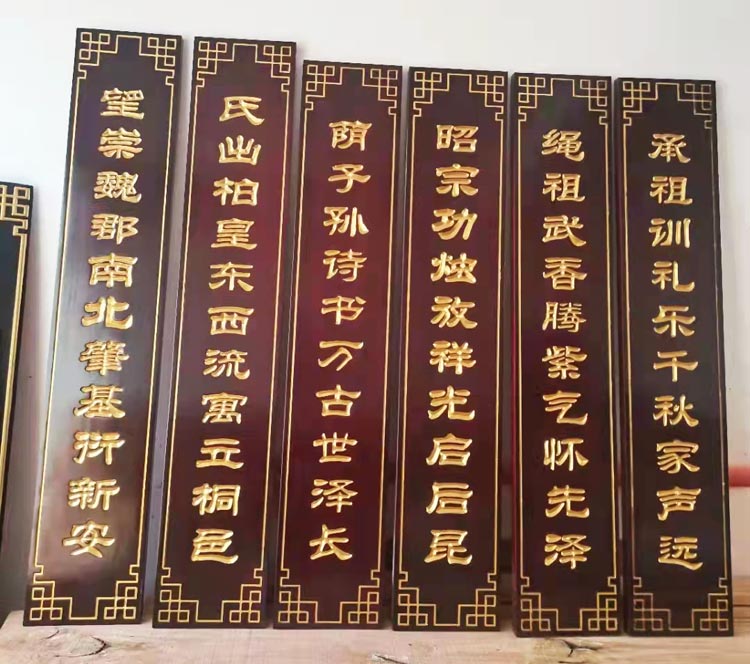 承祖训礼乐千秋家声远
绳祖武香腾紫气怀先泽
昭宗功烛放祥光启后昆
荫子孙诗书万古世泽长
氏出柏皇东西流寓立桐邑
望崇魏郡南北肇基衍新安